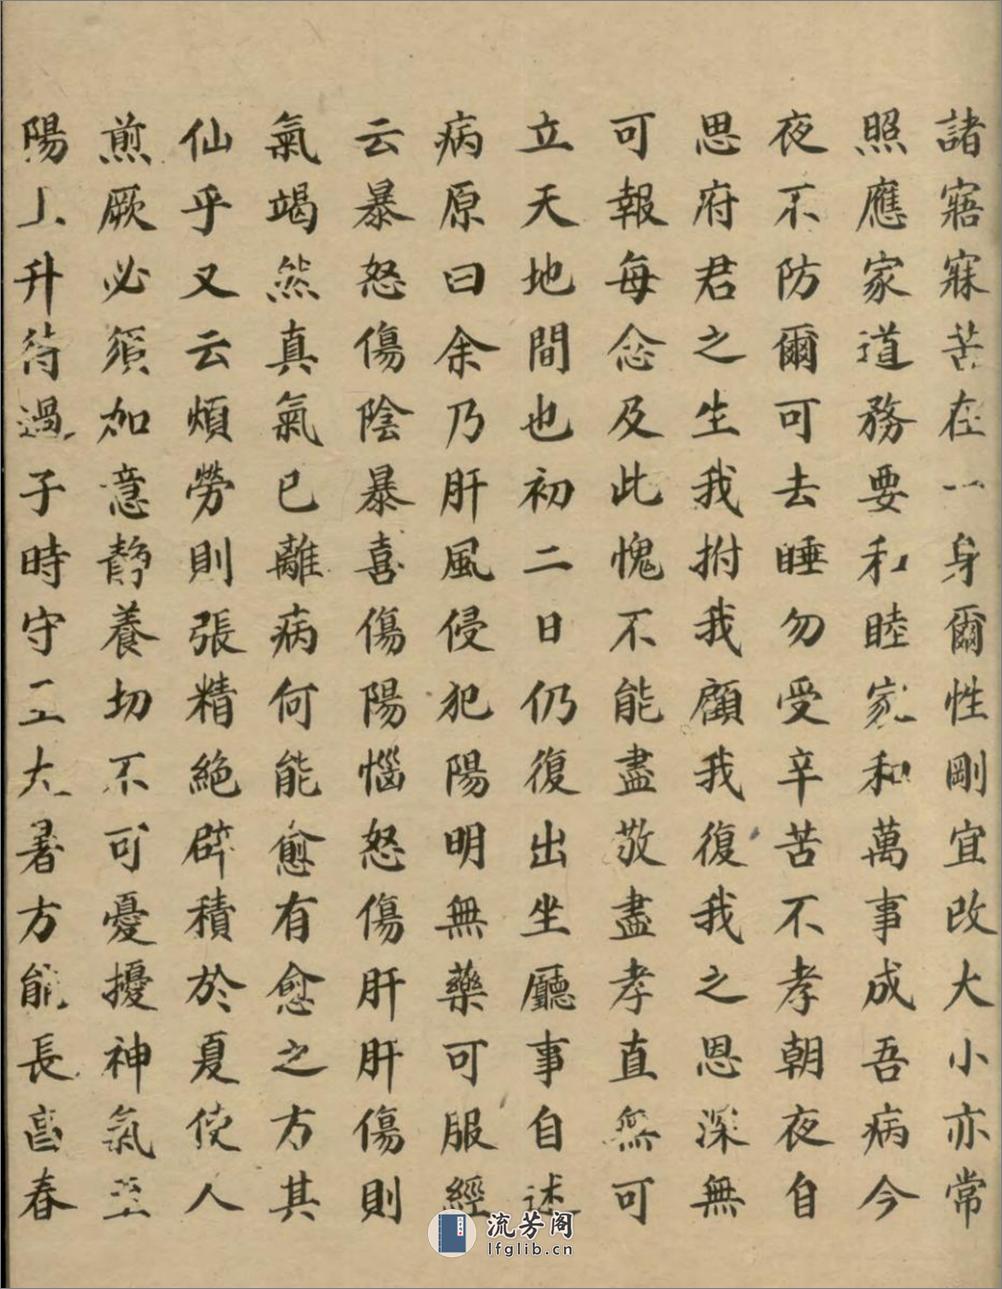 諸寤寐苦在一身爾性剛宜改大小亦常
照應家道務要和睦家和萬事成吾病今
夜不防爾可去睡勿受辛苦不孝朝夜自
思府君之生我拊我顧我復我之恩深無
可報每念及此愧不能盡敬盡孝直無可
立天地間也初二日仍復出坐廳事自述
病原曰余乃肝風侵犯陽明無藥可服經
云暴怒傷陰暴喜傷陽惱怒傷肝肝傷則
氣竭然真氣已離病何能愈有愈之方其
仙乎又云煩勞則張精絕辟積於夏使人
煎厥必須加意靜養切不可憂擾神氣至
陽上升待過子時守工大暑方能長啚春
流芳阁
lfglib.cn